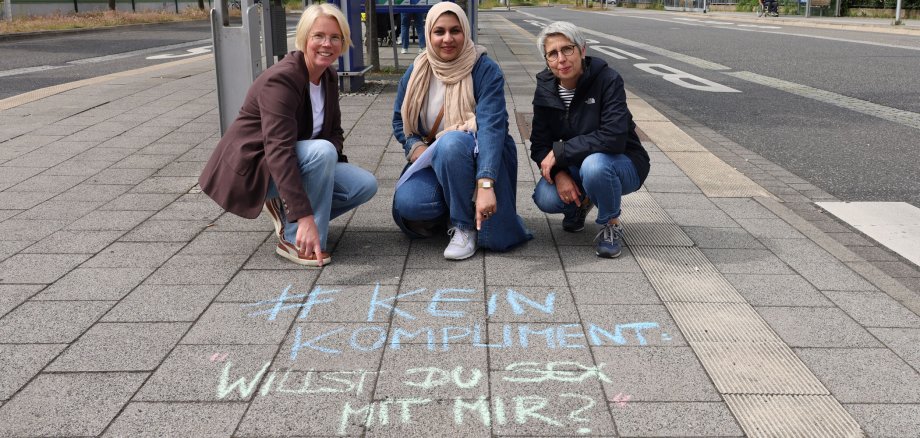 # KEIN
KOMPLIMENT:
WILLST DU SEX
MIT MIR?